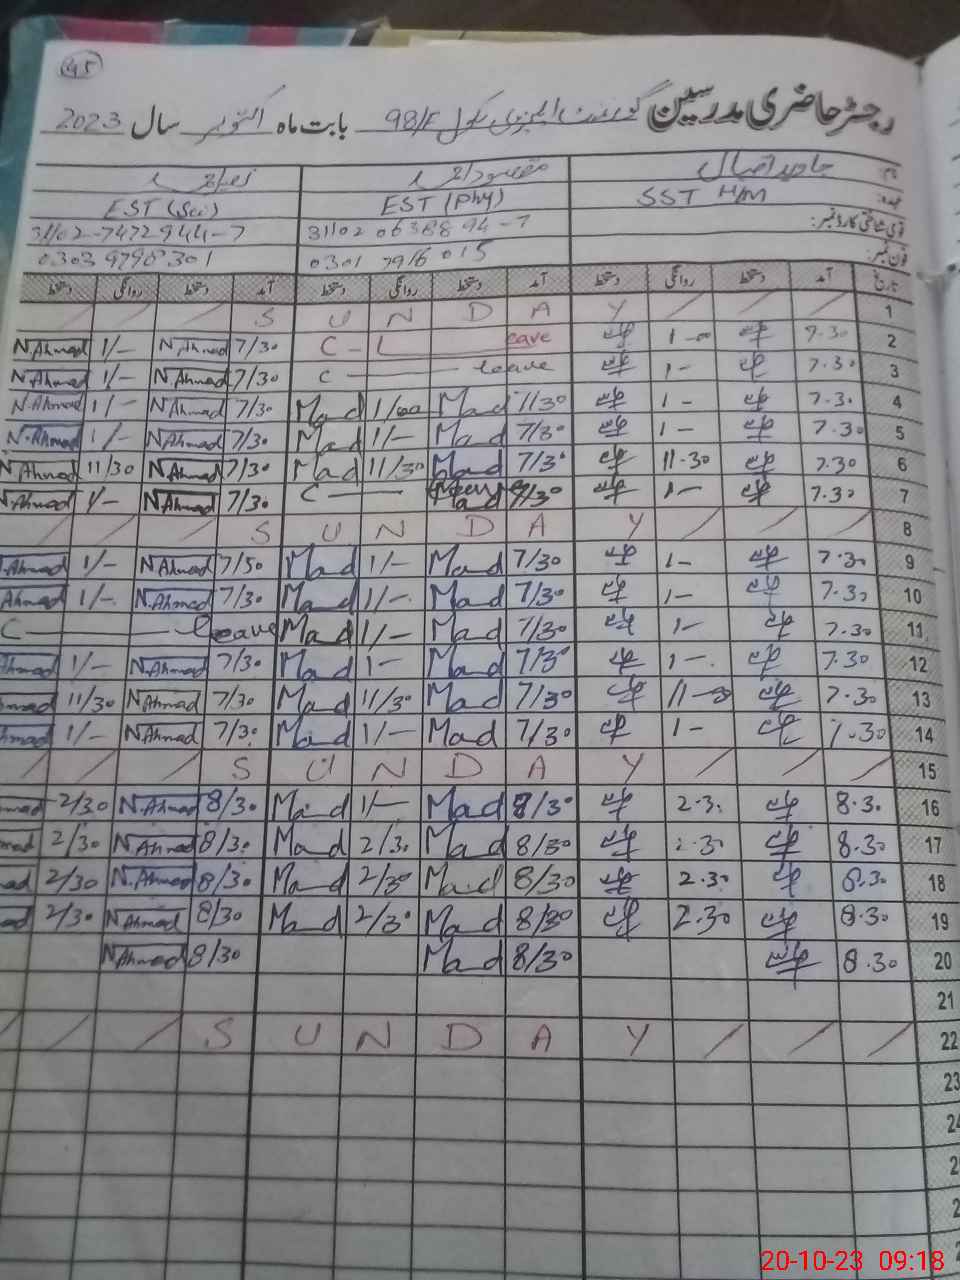 45
رجسٹر حاضری مدرسین گورنمنٹ ایلیمنٹری سکول 98/F بابت ماہ اکتوبر سال 2023
نام: جاوید اقبال مقصود احمد
عہدہ: SST H/M EST (Phy) EST (Sci)
قومی شناختی کارڈ نمبر: 31102 0638894-7 31102-7472944-7
فون نمبر: 0301 7916 015 0303 9798301
تاریخ آمد دستخط روانگی دستخط آمد دستخط روانگی دستخط آمد دستخط روانگی دستخط
/ / / S U N D A Y / / / 1
N.Ahmad 1/- N.Ahmad 7/30 C - L eave 1-00 7.30 2
N.Ahmad 1/- N.Ahmad 7/30 C leave 1- 7.30 3
N.Ahmad 1/- N.Ahmad 7/30 Mad 1/00 Mad 7/30 1- 7.30 4
N.Ahmad 1/- N.Ahmad 7/30 Mad 1/- Mad 7/30 1- 7.30 5
N.Ahmad 11/30 N.Ahmad 7/30 Mad 11/30 Mad 7/30 11.30 7.30 6
N.Ahmad 1/- N.Ahmad 7/30 C 7/30 1- 7.30 7
/ / / S U N D A Y / / / 8
.Ahmad 1/- N.Ahmad 7/30 Mad 1/- Mad 7/30 1- 7.30 9
Ahmad 1/- N.Ahmad 7/30 Mad 1/- Mad 7/30 1- 7.30 10
C leave Mad 1/- Mad 7/30 1- 7.30 11
Ahmad 1/- N.Ahmad 7/30 Mad 1- Mad 7/30 1- 7.30 12
hmad 11/30 N.Ahmad 7/30 Mad 11/30 Mad 7/30 11-30 7.30 13
hmad 1/- N.Ahmad 7/30 Mad 1/- Mad 7/30 1- 7.30 14
/ / / S U N D A Y / / / 15
mad 2/30 N.Ahmad 8/30 Mad 1/- Mad 8/30 2.30 8.30 16
mad 2/30 N.Ahmad 8/30 Mad 2/30 Mad 8/30 2.30 8.30 17
ad 2/30 N.Ahmad 8/30 Mad 2/30 Mad 8/30 2.30 8.30 18
ad 2/30 N.Ahmad 8/30 Mad 2/30 Mad 8/30 2.30 8.30 19
N.Ahmad 8/30 Mad 8/30 8.30 20
21
/ / / S U N D A Y / / / 22
23
20-10-23 09:18